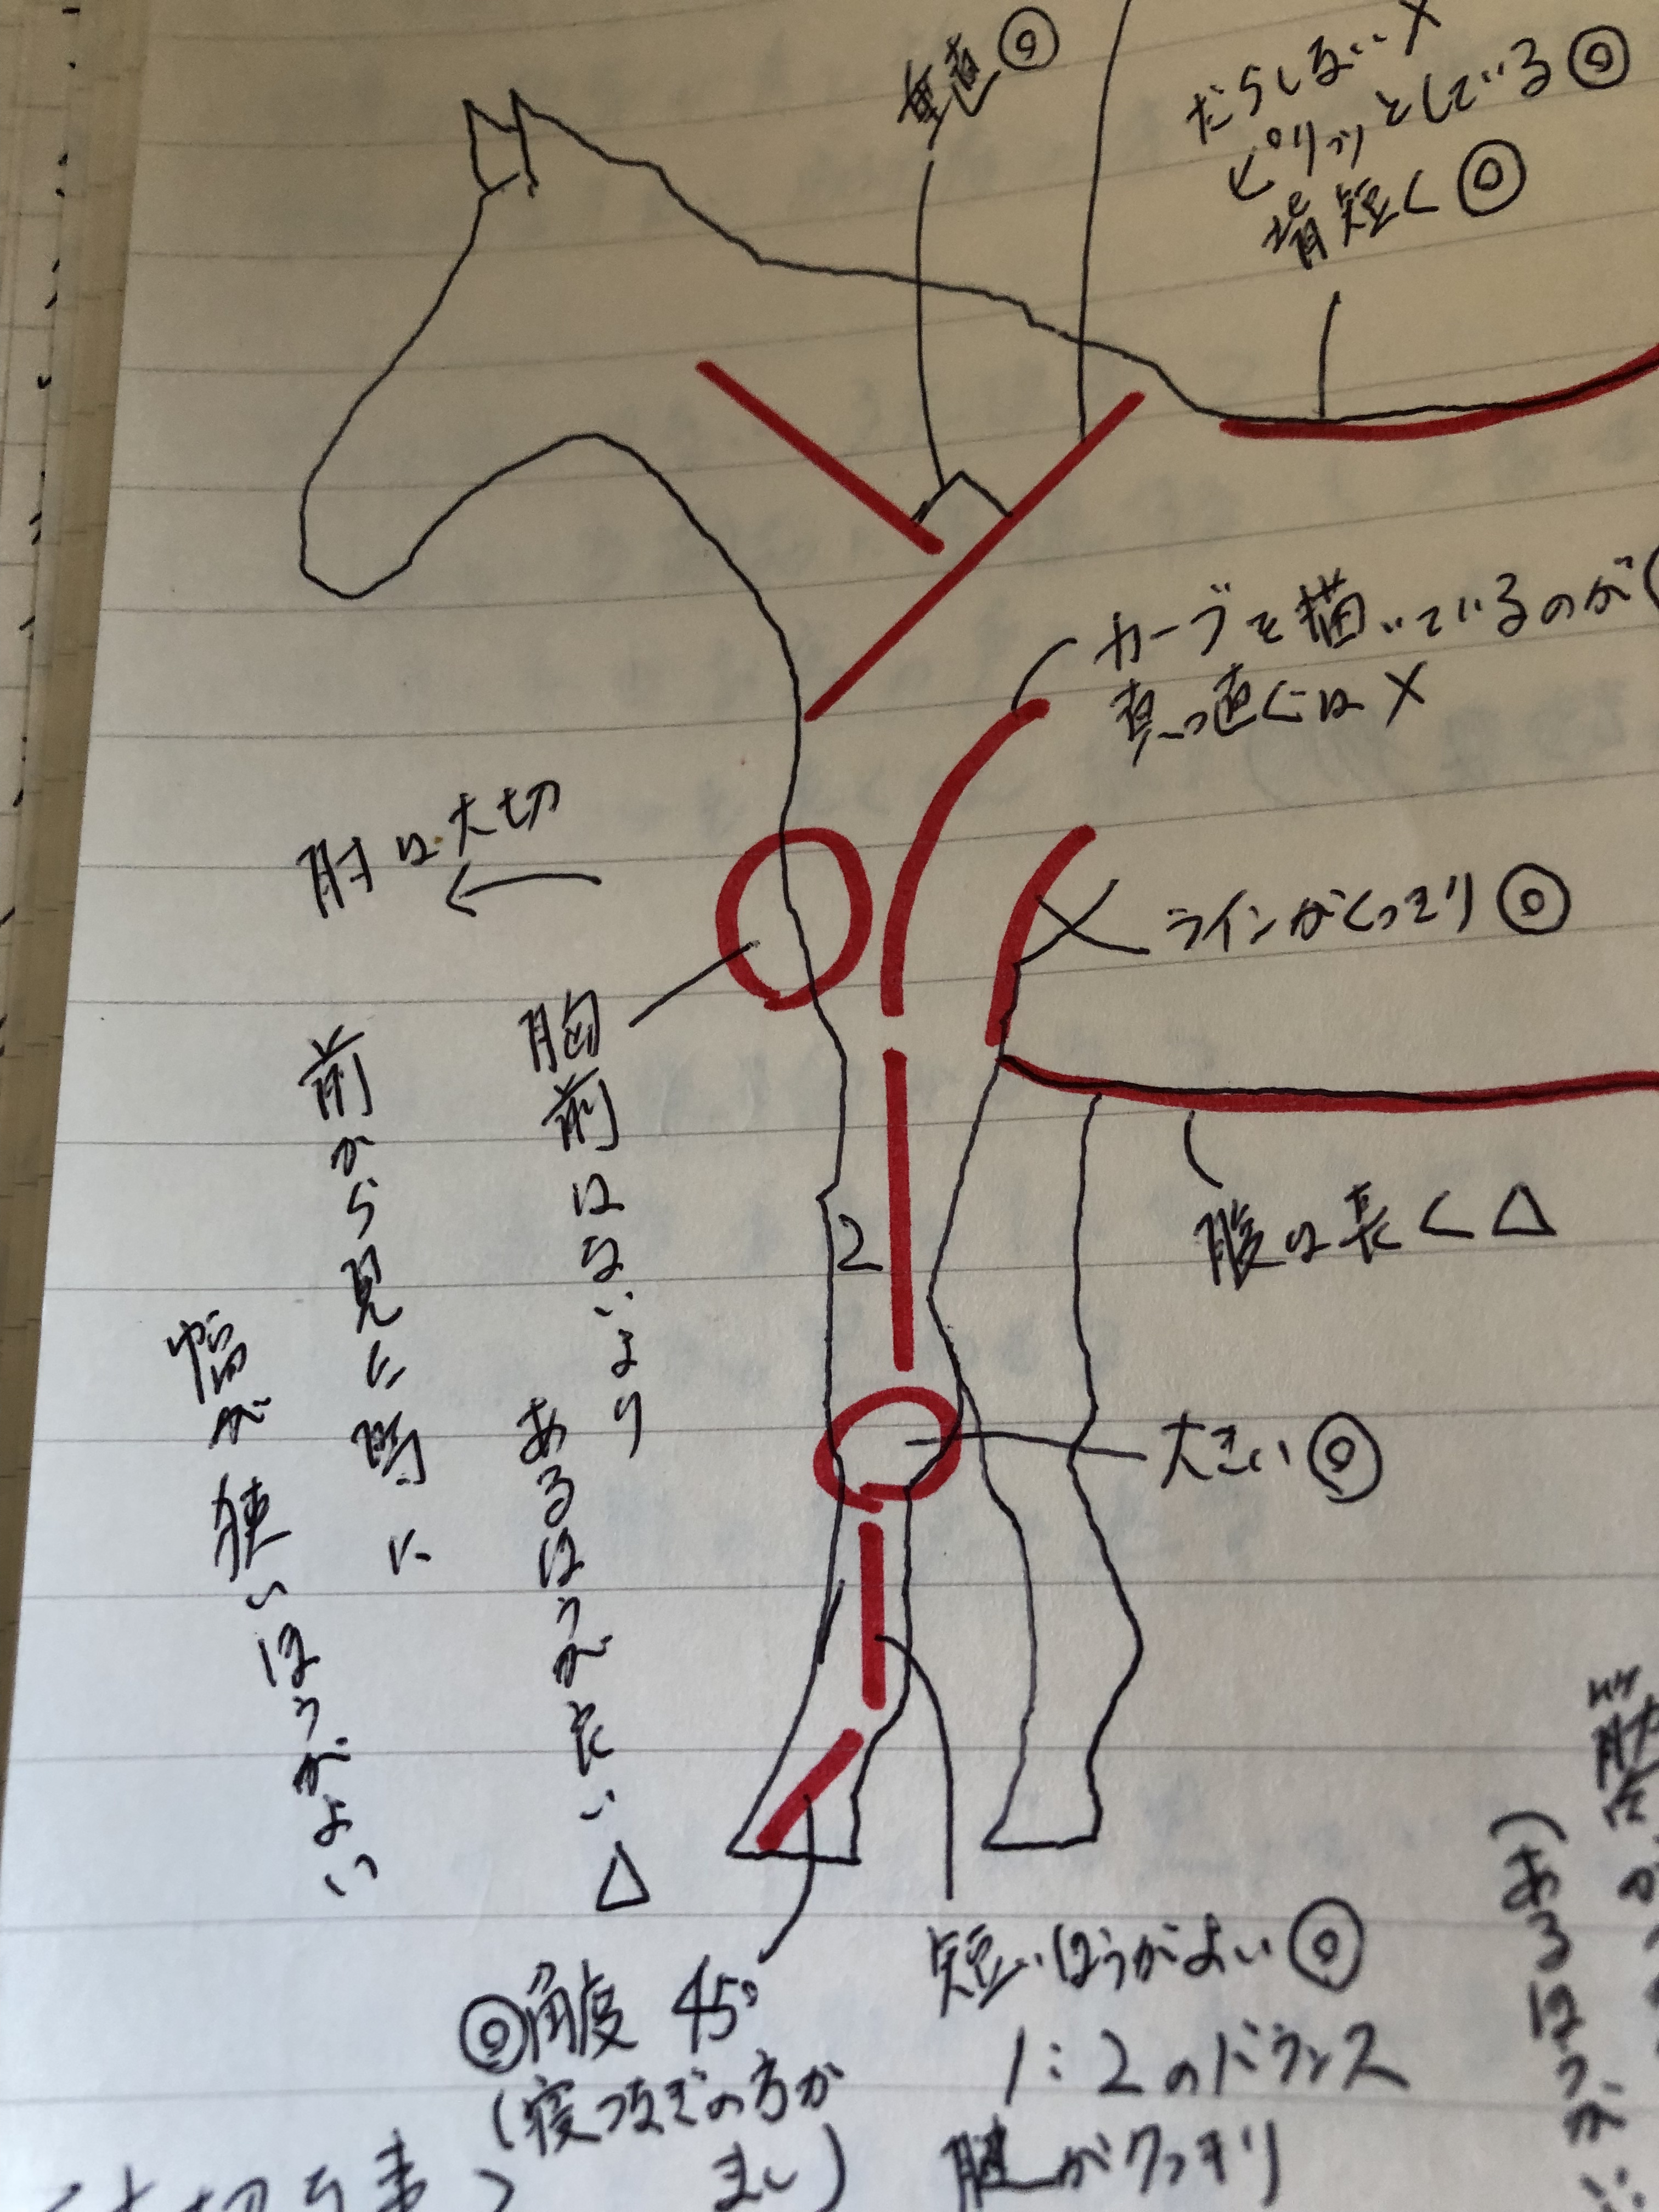 垂直◎
だらしない×
ピリッとしている◎
背短く◎
カーブを描いているのが
真っ直ぐは×
肘は大切
ラインがくっきり◎
胸前はないより
あるほうがたい△
前から見た時に
幅が狭いほうがよい
2
腹は長く△
大きい◎
短いほうがよい◎
1:2のバランス
腱がクッキリ
◎角度 45°
(寝つなぎの方が
まし)
(あるほうが